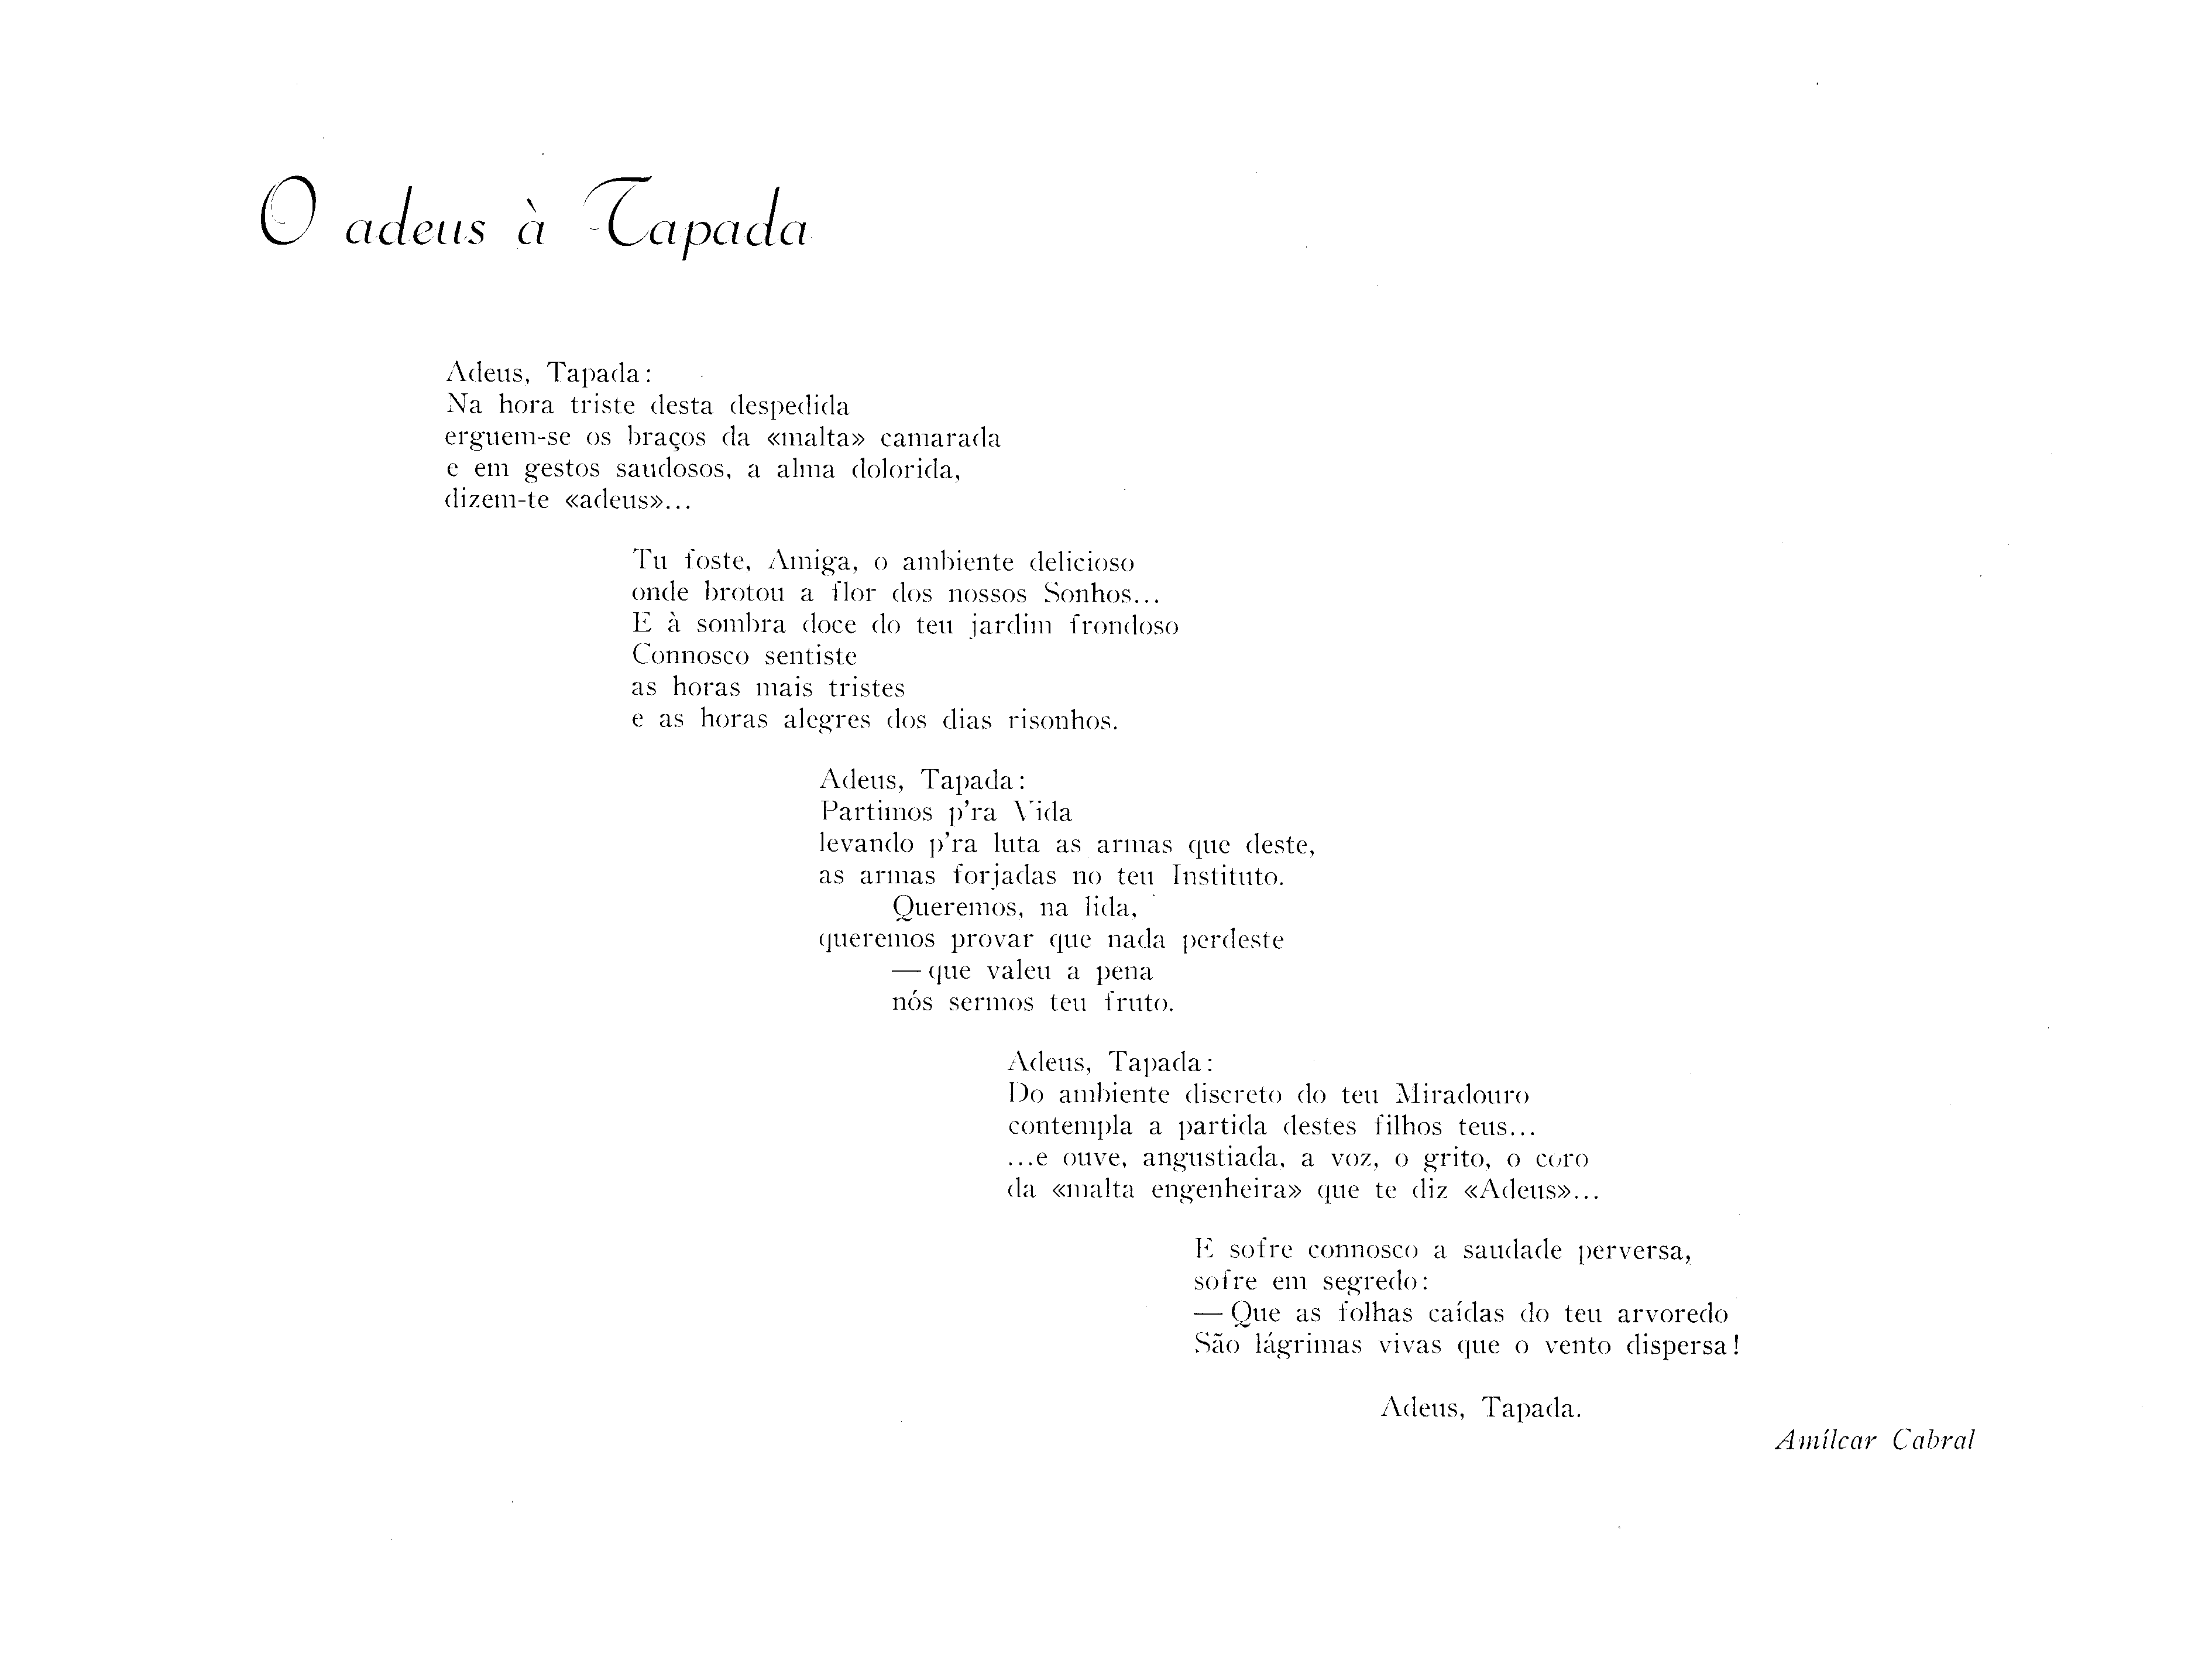 O adeus à Tapada
Adeus, Tapada:
Na hora triste desta despedida
erguem-se os braços da «malta» camarada
e em gestos saudosos, a alma dolorida,
dizem-te «adeus»...
Tu foste, Amiga, o ambiente delicioso
onde brotou a flor dos nossos Sonhos...
E à sombra doce do teu jardim frondoso
Connosco sentiste
as horas mais tristes
e as horas alegres dos dias risonhos.
Adeus, Tapada:
Partimos p'ra Vida
levando p'ra luta as armas que deste,
as armas forjadas no teu Instituto.
Queremos, na lida,
queremos provar que nada perdeste
— que valeu a pena
nós sermos teu fruto.
Adeus, Tapada:
Do ambiente discreto do teu Miradouro
contempla a partida destes filhos teus...
...e ouve, angustiada, a voz, o grito, o coro
da «malta engenheira» que te diz «Adeus»...
E sofre connosco a saudade perversa,
sofre em segredo:
— Que as folhas caídas do teu arvoredo
São lágrimas vivas que o vento dispersa!
Adeus, Tapada.
Amílcar Cabral